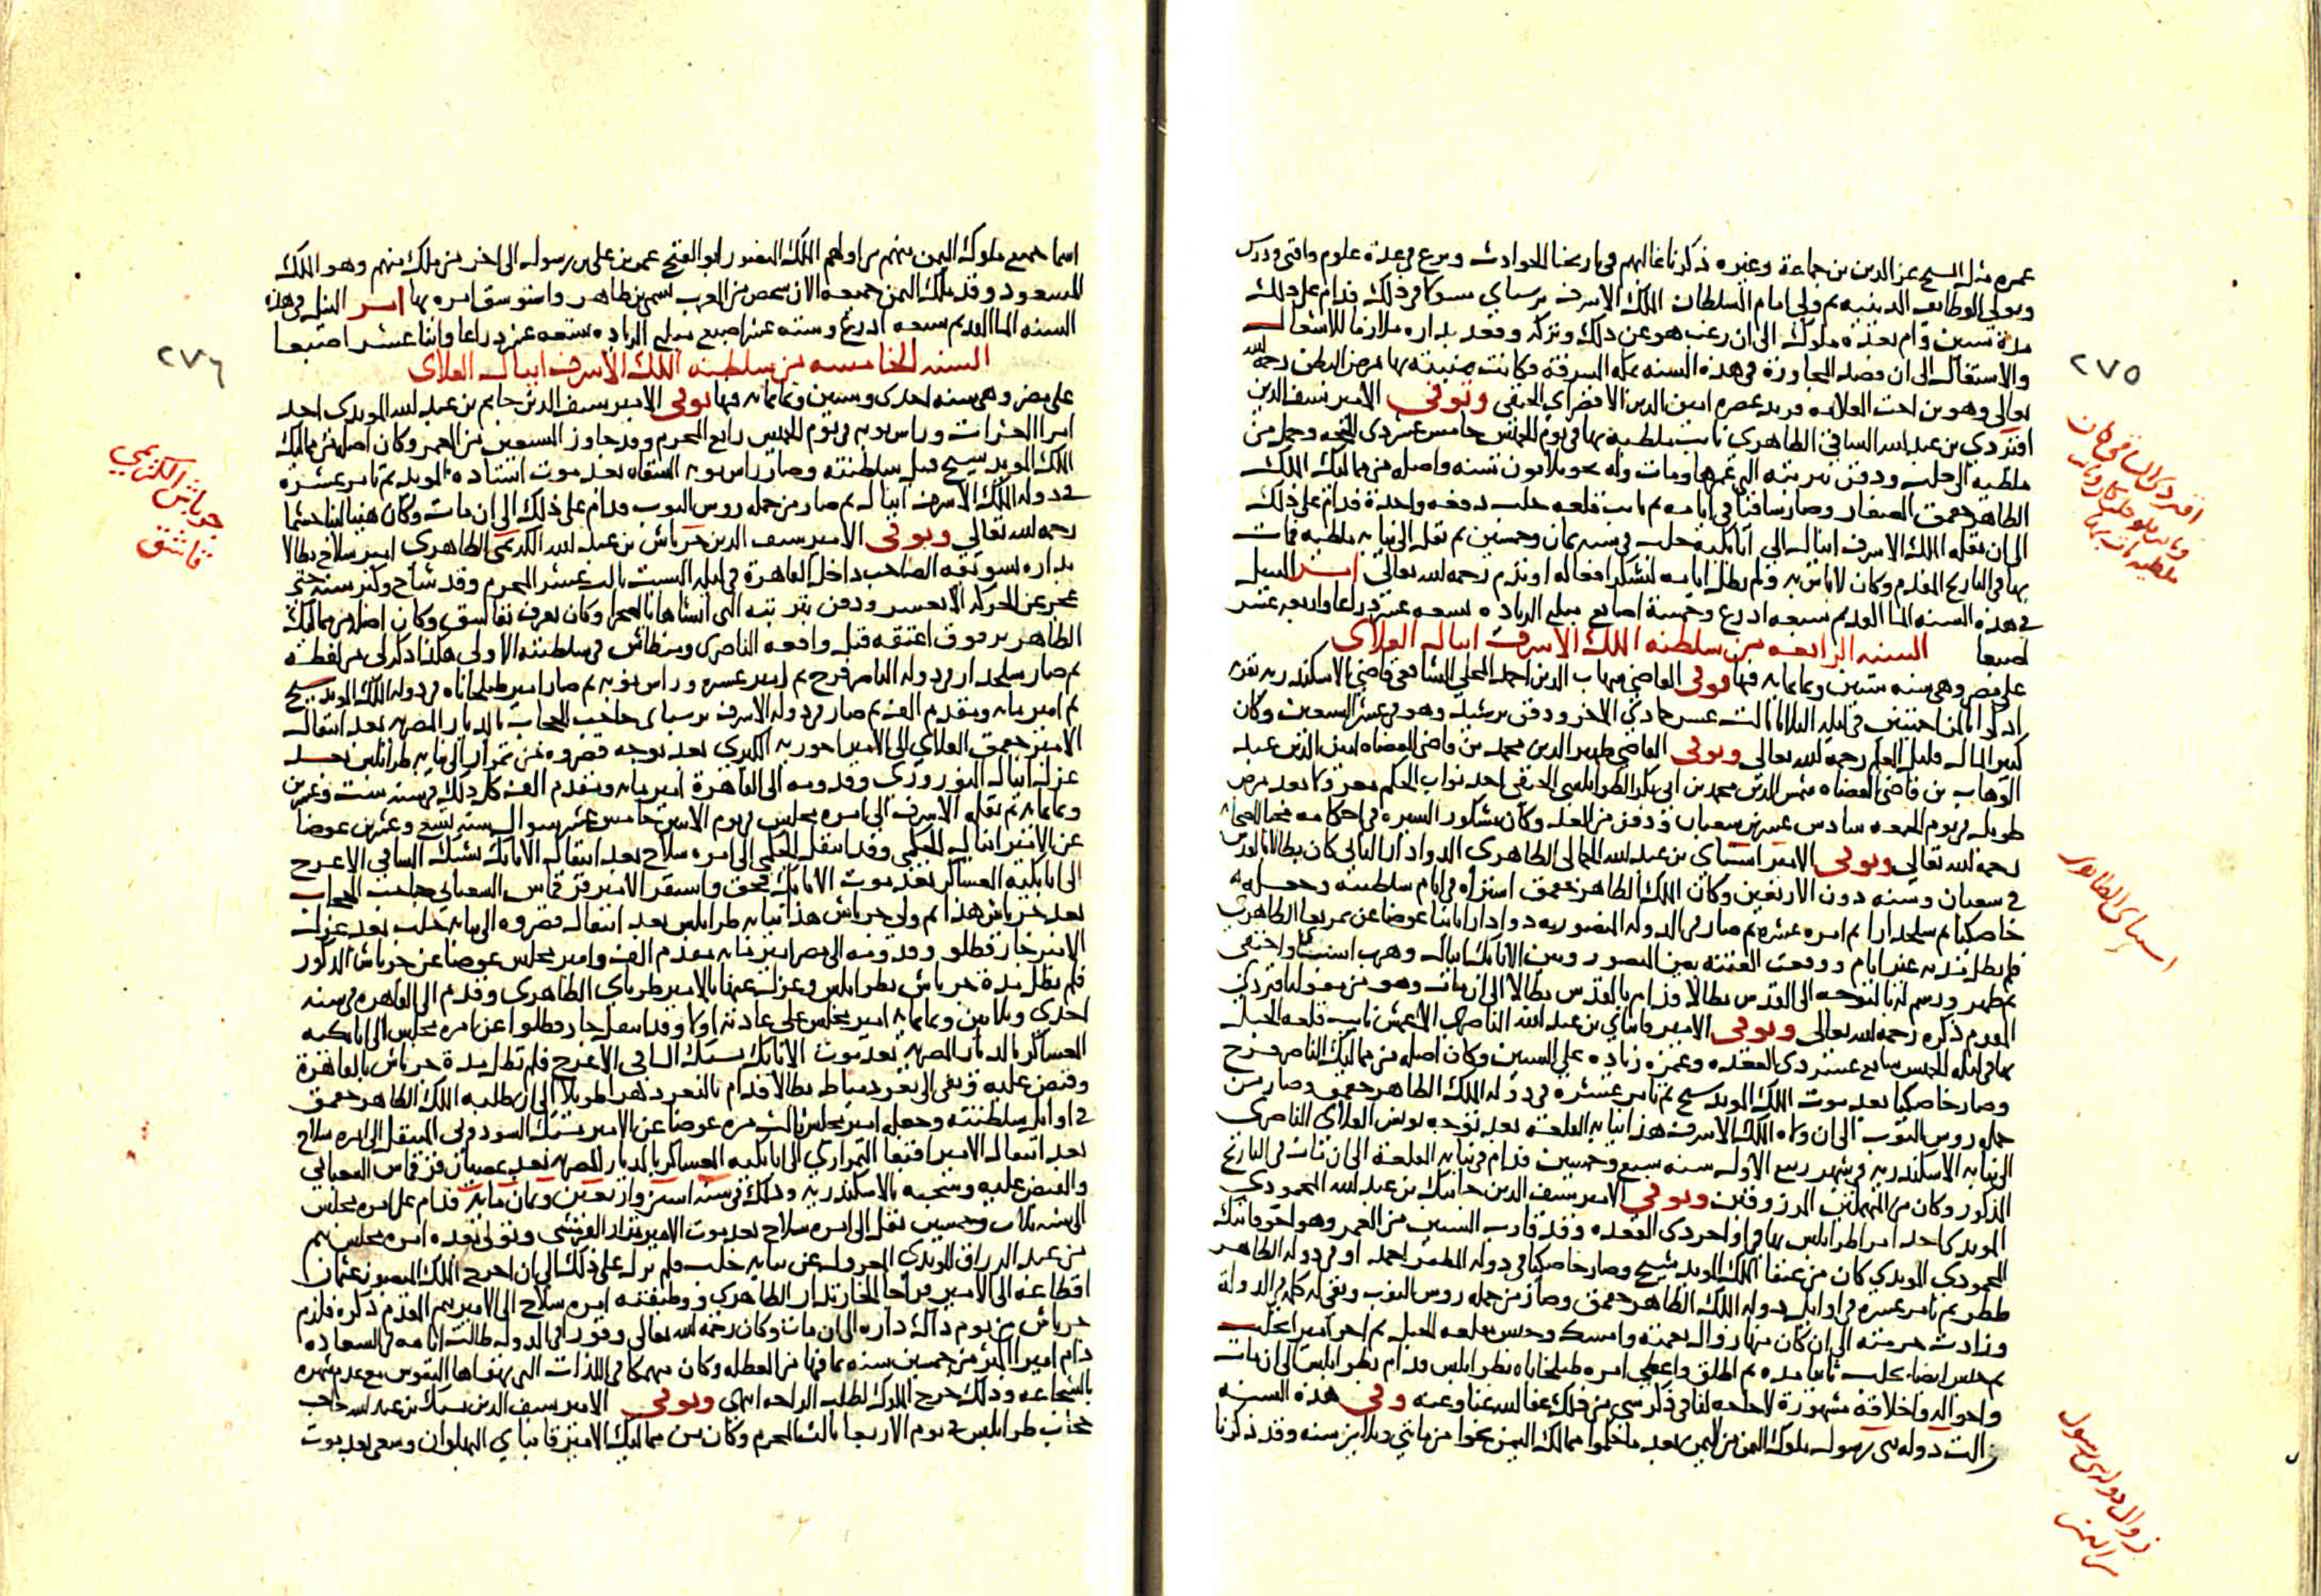 عصره مثل الشيخ عز الدين بن جماعة وغيره ذكرنا غالبهم في تاريخنا الحوادث وبرع في عدة علوم وافتى ودرس
وتولى الوظايف الدينية ثم ولي امام السلطان الملك الاشرف برسباي مسوكا في ذلك فدام على ذلك
مدة سنين وام بعده ملوك الى ان رغب هو عن ذلك وتركه وقعد بداره ملازما للاشغال
والاشتغال الى ان قصد المجاورة في هذه السنه بمكة المشرفة فكانت منيته بها بمرض البطن رحمه الله
تعالى وهو بن اخت العلامه فريد عصره امين الدين الاقصراي الحنفي وتوفي الامير سيف الدين
اقبردي بن عبد الله الساقي الظاهري نايب ملطية بها في يوم الخميس خامس عشر ذي الحجه وحمل من
ملطيه الى حلب ودفن بتربته التي عمرها ومات وله نحو ثلاثون سنه واصله من مماليك الملك
الظاهر جقمق الصغار وصار ساقيا في ايامه ثم نايب قلعه حلب دفعه واحدة فدام على ذلك
الى ان نقله الملك الاشرف اينال الى اتابكية حلب في سنه ثمان وخمسين ثم نقله الى نيابه ملطيه فمات
بها في التاريخ المقدم وكان لا باس به ولم تطل ايامه لتشكر افعاله او تذم رحمه الله تعالى امر النيل
في هذه السنه الما القديم سبعه اذرع وخمسة اصابع مبلغ الزياده تسعه عشر ذراعا واربعه عشر
اصبعا السنه الرابعه من سلطنه الملك الاشرف اينال العلاى
على مصر وهي سنه ستين وثمانمايه فيها توفي القاضي شهاب الدين احمد المحلي الشافعي قاضي الاسكندريه بقريه
ادكو ايالمزاحمتين في ليله الثلاثا ثالث عشر جمادي الاخر ودفن برشيد وهو في عشر السبعين وكان
كثير المال قليل العلم رحمه الله تعالى وتوفي القاضي ظهير الدين محمد بن قاضي القضاه امين الدين عبد
الوهاب بن قاضي القضاه شمس الدين محمد بن ابي بكر الطرابلسي الحنفي احد نواب الحكم معزولا بعد مرض
طويل في يوم الجمعه سادس عشرين شعبان ودفن من الغد وكان مشكور السيره في احكامه
رحمه الله تعالى وتوفي الامير اسنباي بن عبد الله الجمالي الظاهري الدوادار الثاني كان بطالا بالقدس
في شعبان وسنه دون الاربعين وكان الملك الظاهر جقمق اشتراه في ايام سلطنته وجعله
خاصكيا ثم سلحدارا ثم امره عشره ثم صار في الدوله المنصوريه دوادارا ثانيا عوضا عن تمربغا الظاهري
فلم تطل مدته غير ايام ووقعت الفتنه بين المنصور وبين الاتابك اينال وهرب اسنباي واختفى
ثم ظهر ورسم له بالتوجه الى القدس بطالا فدام بالقدس بطالا الى ان مات وهو من
المقدم ذكره رحمه الله تعالى وتوفي الامير قانباي بن عبد الله الناصري الاعمش نايب قلعه الجبل
بها في ليله الخميس سابع عشر ذي القعده وعمره زياده على الستين وكان اصله من مماليك الناصر فرج
وصار خاصكيا بعد موت الملك المويد شيخ ثم تامر عشره في دوله الملك الظاهر جقمق وصار من
جمله روس النوب الى ان ولاه الملك الاشرف هذا نيابه القلعه بعد توجه يونس العلاى الناصرى
الى نيابه الاسكندريه في شهر ربيع الاول سنه سبع وخمسين فدام في نيابه القلعه الى ان مات في التاريخ
المذكور وكان من المهملين المرزوقين وتوفي الامير سيف الدين جانبك بن عبد الله المحمودي
المويدي احد امرا طرابلس بها في اواخر ذي القعده وقد قارب الستين من العمر وهو اخو قانبك
المحمودي المويدي كان من عتقا الملك المويد شيخ وصار خاصكيا في دوله المظفر احمد او في دوله الظاهر
ططر ثم تامر عشره في اوايل دوله الملك الظاهر جقمق وصار من جمله روس النوب وبقي له كلمه في الدولة
وزادت حرمته الى ان كان سببا زوال نعمته وامسك وحبس بقلعه الجبل ثم اخرج لحلب
ثم حبس ايضا بحلب ثانيا مده ثم اطلق واعطي امره طبلخاناه بطرابلس فدام بطرابلس الى ان مات
واحواله واخلاقه مشهورة لا حاجه لنا في ذكر شي من ذلك عفا الله عنا وعنه وفي هذه السنه
زالت دوله بني رسول ملوك اليمن من اليمن بعد ما حكموا ممالك اليمن نحوا من مايتي وثلاثين سنه وقد ذكرنا
٢٧٥
اقبردي الساقي كان
اسنباي الظاهري
زوال دوله بني رسول
من اليمن
اسما جميع ملوك اليمن منهم من اولهم الملك المنصور ابو الفتح عمر بن علي بن رسول الى اخر من ملك منهم وهو الملك
المسعود وقد ملك اليمن جميعه الان شخص من العرب يسمى بن طاهر واستوسق امره بها امر النيل في هذه
السنه الما القديم سبعه اذرع وسته عشر اصبع مبلغ الزياده سبعه عشر ذراعا واثنا عشر اصبعا
السنه الخامسه من سلطنه الملك الاشرف اينال العلاى
على مصر وهي سنه احدى وستين وثمانمايه فيها توفي الامير سيف الدين حاتم بن عبد الله المويدى احد
امرا العشرات وراس نوبه في يوم الخميس رابع المحرم وقد جاوز السبعين من العمر وكان اصله من مماليك
الملك المويد شيخ قبل سلطنته وصار راس نوبه السقاه بعد موت استاده المويد ثم تامر عشره
في دوله الملك الاشرف اينال ثم صار من جمله روس النوب فدام على ذلك الى ان مات وكان هينا لينا حشما
رحمه الله تعالى وتوفى الامير سيف الدين جرباش بن عبد الله الكريمي الظاهري امير سلاح بطالا
بداره بسويقه الصاحب داخل القاهرة في ليله السبت ثالث عشر المحرم وقد شاخ وكبر سنه حتى
عجز عن الحركه الا بعسر ودفن بتربته التي انشاها بالصحرا وكان يعرف بقاشق وكان اصله من مماليك
الظاهر برقوق اعتقه قبل واقعه الناصري ومنطاش في سلطنته الاولى هكذا ذكر لي من لفظه
ثم صار سلحدار في دوله الناصر فرج ثم امير عشره وراس نوبه ثم صار امير طبلخاناه في دوله الملك المويد شيخ
ثم امير مايه ومقدم الف ثم صار في دوله الاشرف برسباي حاجب الحجاب بالديار المصريه بعد انتقال
الامير جقمق العلاي الى الامير اخوريه الكبرى بعد توجه قصروه من تمراز الى نيابه طرابلس بعد
عزل اينال النوروزي وقدومه الى القاهرة امير مايه ومقدم الف كل ذلك في سنه ست وعشرين
وثمانمايه ثم نقله الاشرف الى امره مجلس في يوم الاثنين خامس عشر شوال سنه تسع وعشرين عوضا
عن الامير اينال الجكمي وقد انتقل الجكمي الى امره سلاح بعد انتقال الاتابك يشبك الساقي الاعرج
الى اتابكيه العساكر بعد موت الاتابك قجق واستقر الامير قرقماس الشعباني حاجب الحجاب
بعد جرباش هذا ثم ولي جرباش هذا نيابه طرابلس بعد انتقال قصروه الى نيابه حلب بعد عزل
الامير جارقطلو وقدومه الى مصر امير مايه مقدم الف وامير مجلس عوضا عن جرباش المذكور
فلم تطل مدة جرباش بطرابلس وعزل عنها بالامير طرباي الظاهري وقدم الى القاهره في سنه
احدى وثلاثين وثمانمايه امير مجلس على عادته اولا وقد انتقل جارقطلوا عن امره مجلس الى اتابكيه
العساكر بالديار المصريه بعد موت الاتابك يشبك الساقي الاعرج فلم تطل مدة جرباش بالقاهرة
وقبض عليه ونفى الى ثغر دمياط بطالا فدام بالثغر دهرا طويلا الى ان طلبه الملك الظاهر جقمق
في اوايل سلطنته وجعله امير مجلس ثالث مره عوضا عن الامير يشبك السودوني المنتقل الى امره سلاح
بعد انتقال الامير اقبغا التمرازي الى اتابكيه العساكر بالديار المصريه بعد عصيان قرقماس الشعباني
والقبض عليه وسجنه بالاسكندريه وذلك في سنه اثنين واربعين وثمان مايه فدام على امره مجلس
الى سنه ثلاث وخمسين نقل الى امره سلاح بعد موت الامير تمراز القرمشي وتولى بعده امره مجلس تنم
من عبد الرزاق المويدي المعزول عن نيابه حلب ولم يزل على ذلك الى ان اخرج الملك المنصور عثمان
اقطاعه الى الامير قراجا الخازندار الظاهري ووظيفته امره سلاح الى الامير تنم المقدم ذكره فلزم
جرباش من يوم ذاك داره الى ان مات وكان رحمه الله تعالى وقورا في الدوله طالت ايامه في السعاده
دام اميرا اكثر من خمسين سنه بما فيها من العطله وكان منهمكا في اللذات التي تهواها النفوس مع عدم شهره
بالشجاعه وذلك خرج الملوك لطلب الراحه انتهى وتوفى الامير سيف الدين يشبك بن عبد الله حاجب
حجاب طرابلس في يوم الاربعا ثالث المحرم وكان من مماليك الامير قانباي البهلوان وسعى بعد موت
٢٧٦
جرباش الكريمي
قاشق